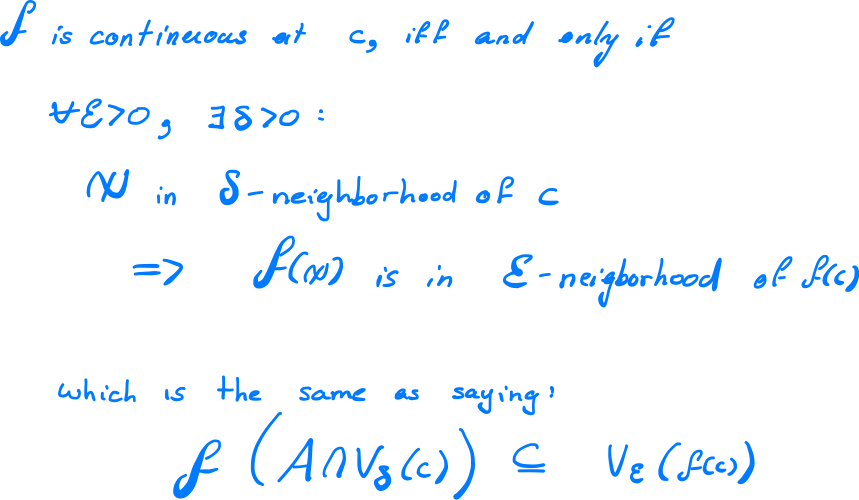 f is continuous at c, iff and only if
∀ε>0, ∃δ>0:
x in δ-neighborhood of c
=> f(x) is in ε-neigborhood of f(c)
which is the same as saying:
f(A∩V_δ(c)) ⊆ V_ε(f(c))